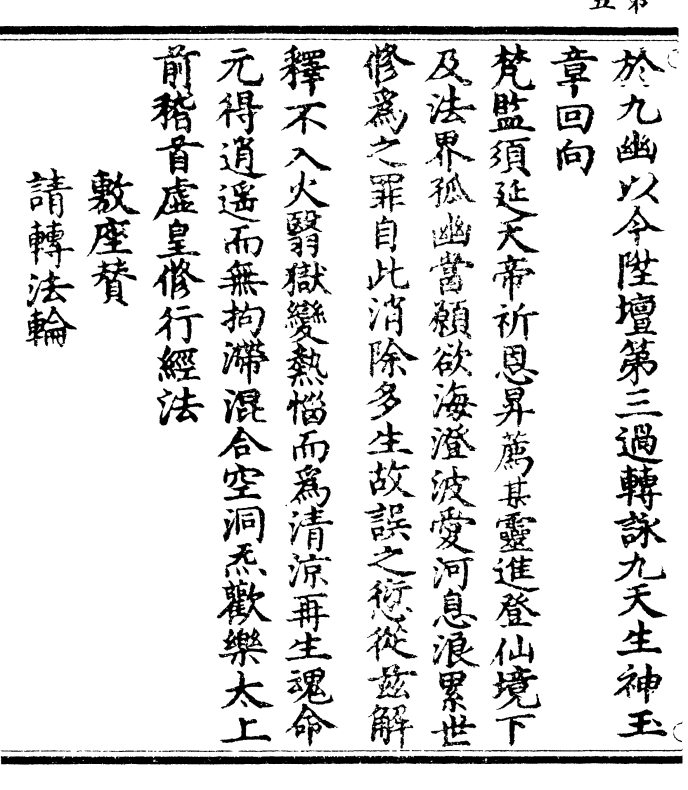 於九幽以今陞壇第三過轉詠九天生神玉
章回向
梵監須延天帝祈恩昇薦某靈進登仙境下
及法界孤幽當願欲海澄波愛河息浪累世
修爲之罪自此消除多生故誤之愆從茲解
釋不入火翳獄變熱惱而爲清涼再生魂命
元得逍遥而無拘滯混合空洞炁歡樂太上
前稽首虛皇修行經法
敷座賛
請轉法輪